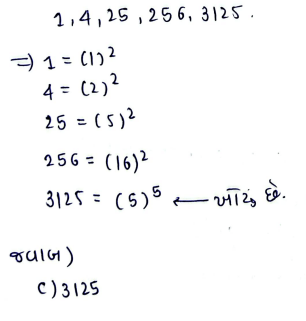 1, 4, 25, 256, 3125.
⇒ 1 = (1)²
4 = (2)²
25 = (5)²
256 = (16)²
3125 = (5)⁵ ← ખોટું છે.
જવાબ)
C) 3125